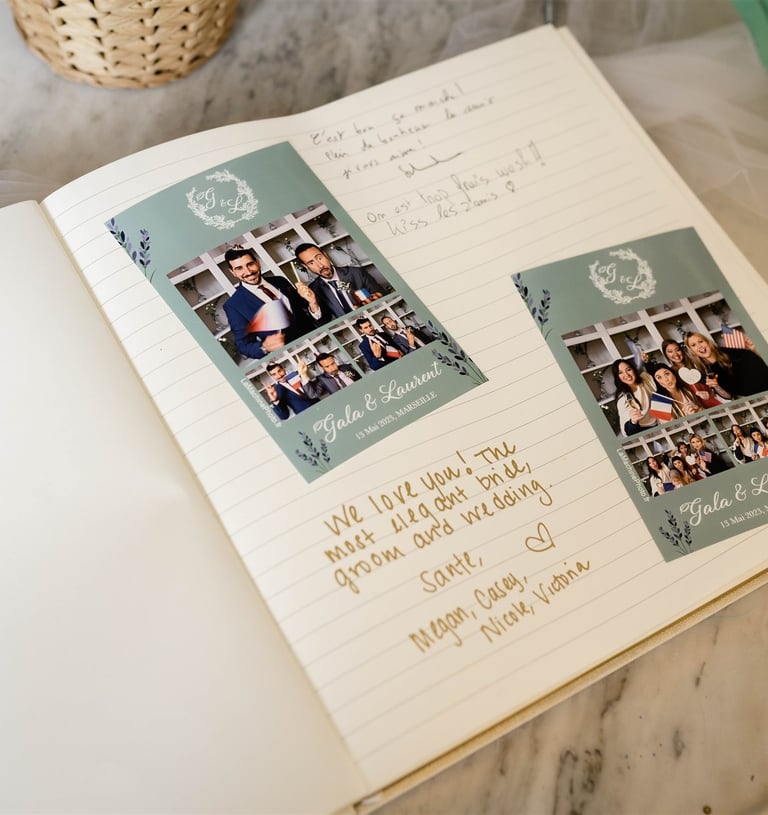 C'est bon, ça marche!
Plein de bonheur la
On est trop frais wesh!!
Kiss les z'amis ♡
G & L
Gala & Laurent
13 Mai 2023, MARSEILLE
G & L
Gala & L
13 Mai 2023, M
We love you! The
most elegant bride,
groom and wedding.
Sante, ♡
Megan, Casey,
Nicole, Victoria